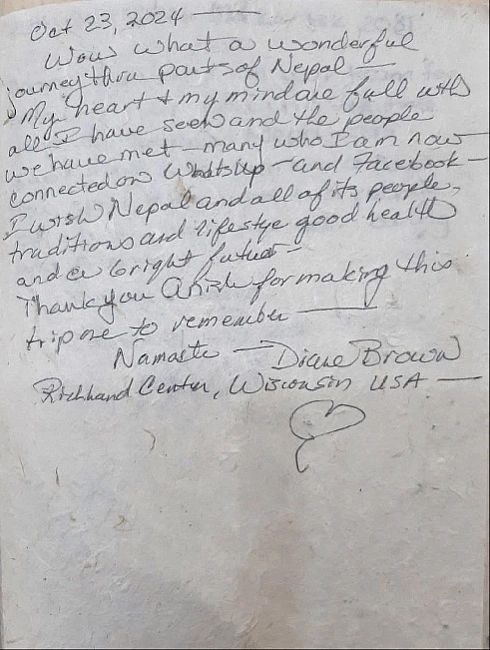 Oct 23, 2024 —
Wow what a wonderful
journey thru parts of Nepal —
My heart + my mind are full with
all I have seen and the people
we have met — many who I am now
connected on WhatsUp — and Facebook —
I wish Nepal and all of its people,
traditions and lifestye good health
and a bright future —
Thank you for making this
trip one to remember —
Namaste — Diane Brown
Richland Center, Wisconsin USA —